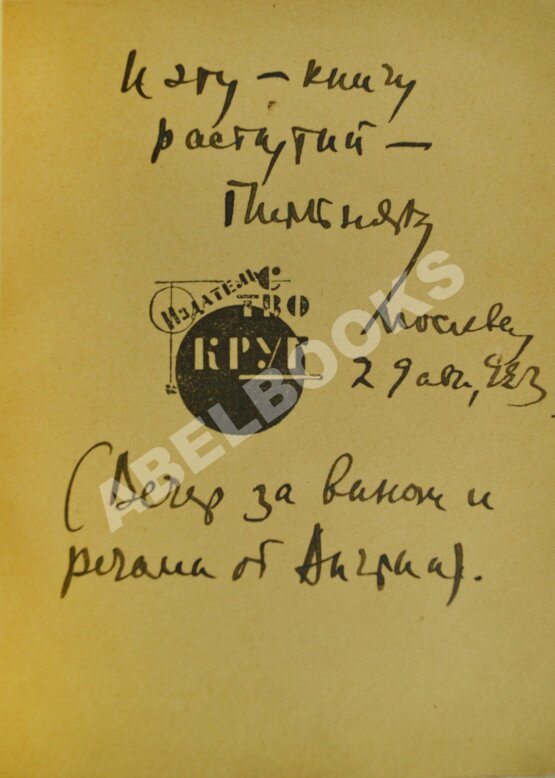 И эту – книгу
распутий –
Пильняк
ИЗДАТЕЛЬС
ТВО
КРУГ
Москва,
29 авг, 923.
(Вечер за вином и
речами об Англии).
ABELBOOKS